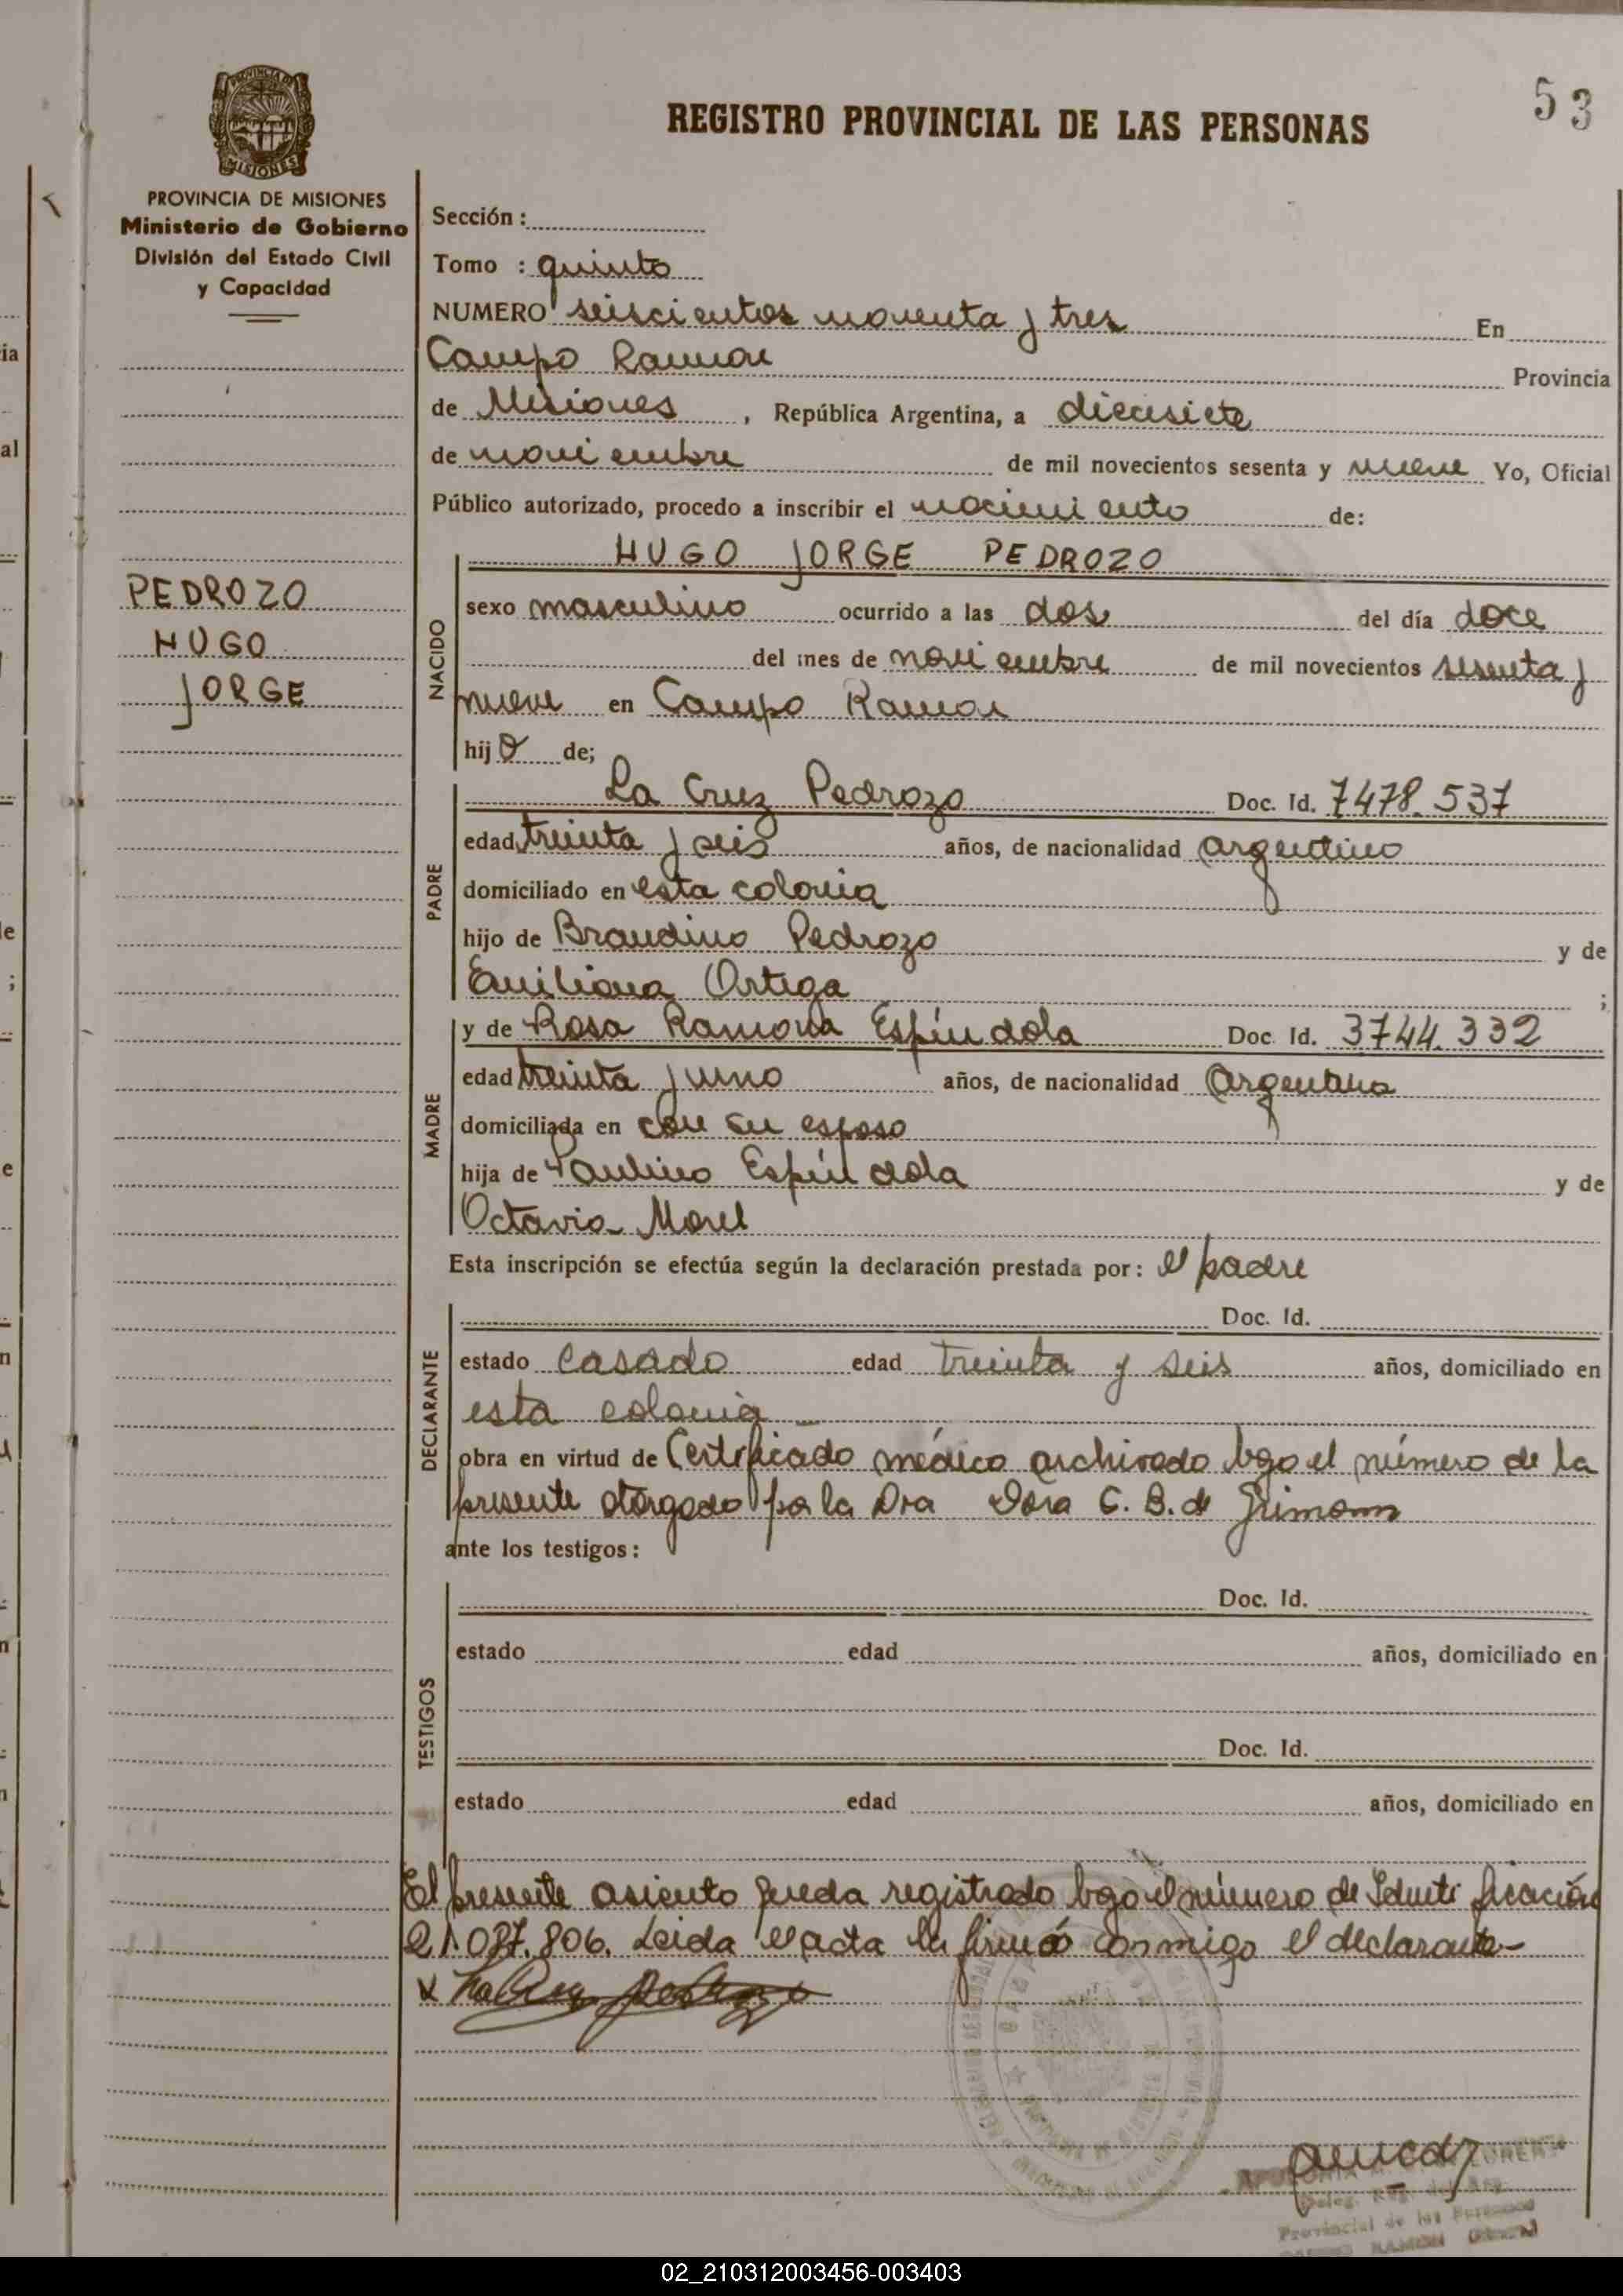 53
REGISTRO PROVINCIAL DE LAS PERSONAS
PROVINCIA DE MISIONES
MISIONES
PROVINCIA DE MISIONES
Ministerio de Gobierno
División del Estado Civil
y Capacidad
Sección :
Tomo : quinto
NUMERO seiscientos noventa y tres En
Campo Ramon Provincia
de Misiones , República Argentina, a diecisiete
de noviembre de mil novecientos sesenta y nueve Yo, Oficial
Público autorizado, procedo a inscribir el nacimiento de:
HUGO JORGE PEDROZO
PEDROZO
HUGO
JORGE
NACIDO
sexo masculino ocurrido a las dos del día doce
del mes de noviembre de mil novecientos sesenta y
nueve en Campo Ramon
hijo de;
PADRE
La Cruz Pedrozo Doc. Id. 7478.537
edad treinta y seis años, de nacionalidad argentino
domiciliado en esta colonia
hijo de Brandino Pedrozo y de
Emiliana Ortega ;
MADRE
y de Rosa Ramona Espíndola Doc. Id. 3744.332
edad treinta y uno años, de nacionalidad Argentina
domiciliada en con su esposo
hija de Paulino Espíndola y de
Octavia Morel
Esta inscripción se efectúa según la declaración prestada por: el padre
DECLARANTE
Doc. Id.
estado casado edad treinta y seis años, domiciliado en
esta colonia
obra en virtud de Certificado médico archivado bajo el número de la
presente otorgado por la Dra Dora C. B. de Grimom
ante los testigos:
TESTIGOS
Doc. Id.
estado edad años, domiciliado en
Doc. Id.
estado edad años, domiciliado en
El presente asiento queda registrado bajo el número de Identificación
21.087.806. Leida el acta la firmó conmigo el declarante-
x La Cruz Pedrozo
Deleg. Reg.
Provincial de las Personas
RAMON
02_210312003456-003403